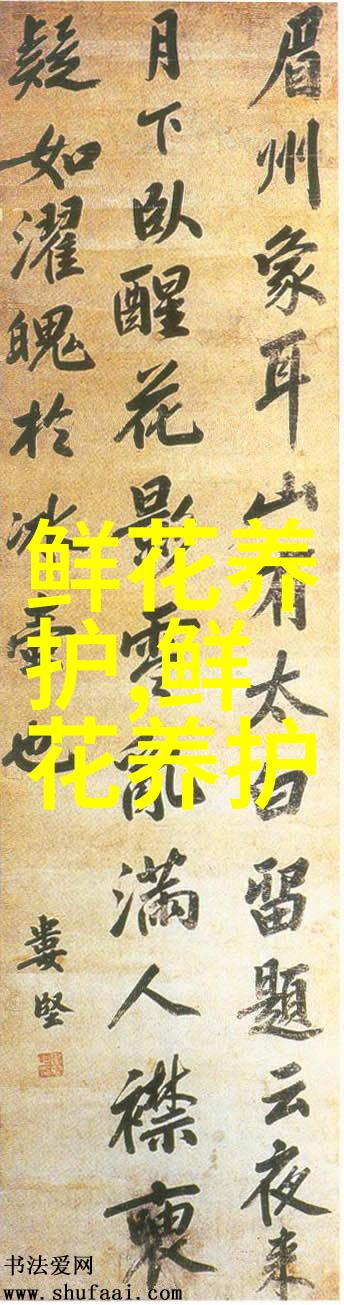 眉州象耳山有太白留題云夜來
月下臥醒花影零亂滿人襟
疑如濯魄於冰壺也
婁堅
鲜花养
护,鲜
花养护
书法爱网
www.shufaai.com